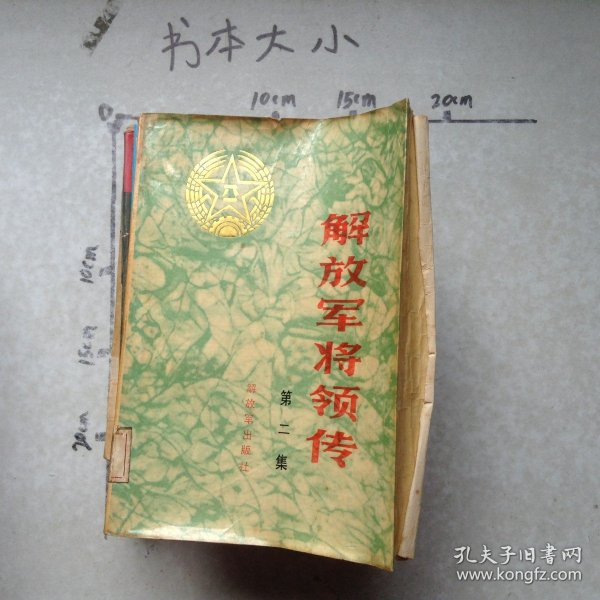 书本大小
0 10cm 15cm 20cm
10cm
15cm
20cm
八一
解放军将领传
第二集
解放军出版社
孔夫子旧书网
www.kongfz.com